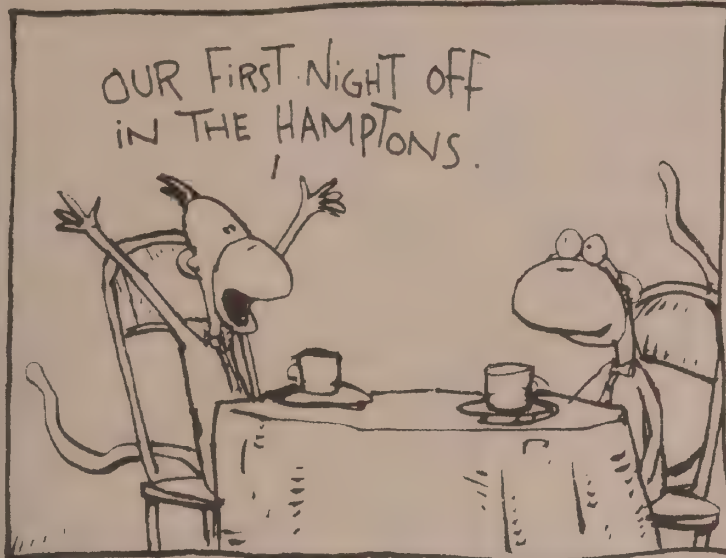 OUR FiRST NiGHT OFF
iN THE HAMPTONS.